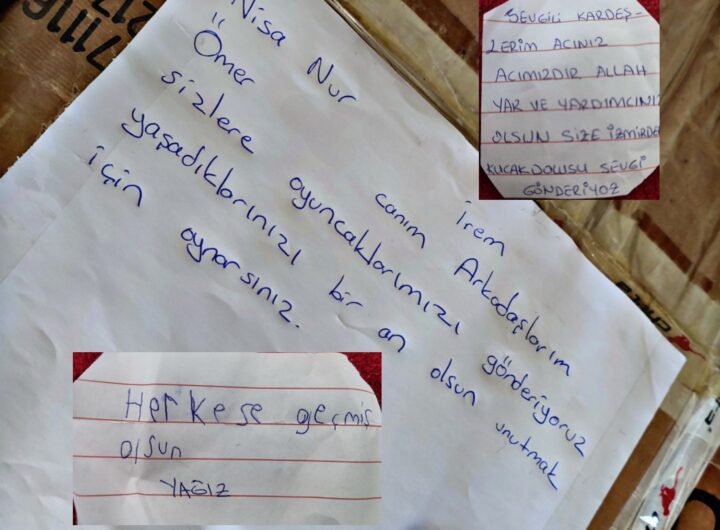 Nisa Nur İrem
Ömer canım Arkadaşlarım
sizlere oyuncaklarımızı gönderiyoruz
yaşadıklarınızı bir an olsun unutmak
için oynarsınız.
SEVGİLİ KARDEŞ-
LERİM ACINIZ
ACIMIZDIR ALLAH
YAR VE YARDIMCINIZ
OLSUN SİZE İZMİRDE
KUCAK DOLUSU SEVGİ
GÖNDERİYOZ
Herkese geçmiş
olsun
YAĞIZ